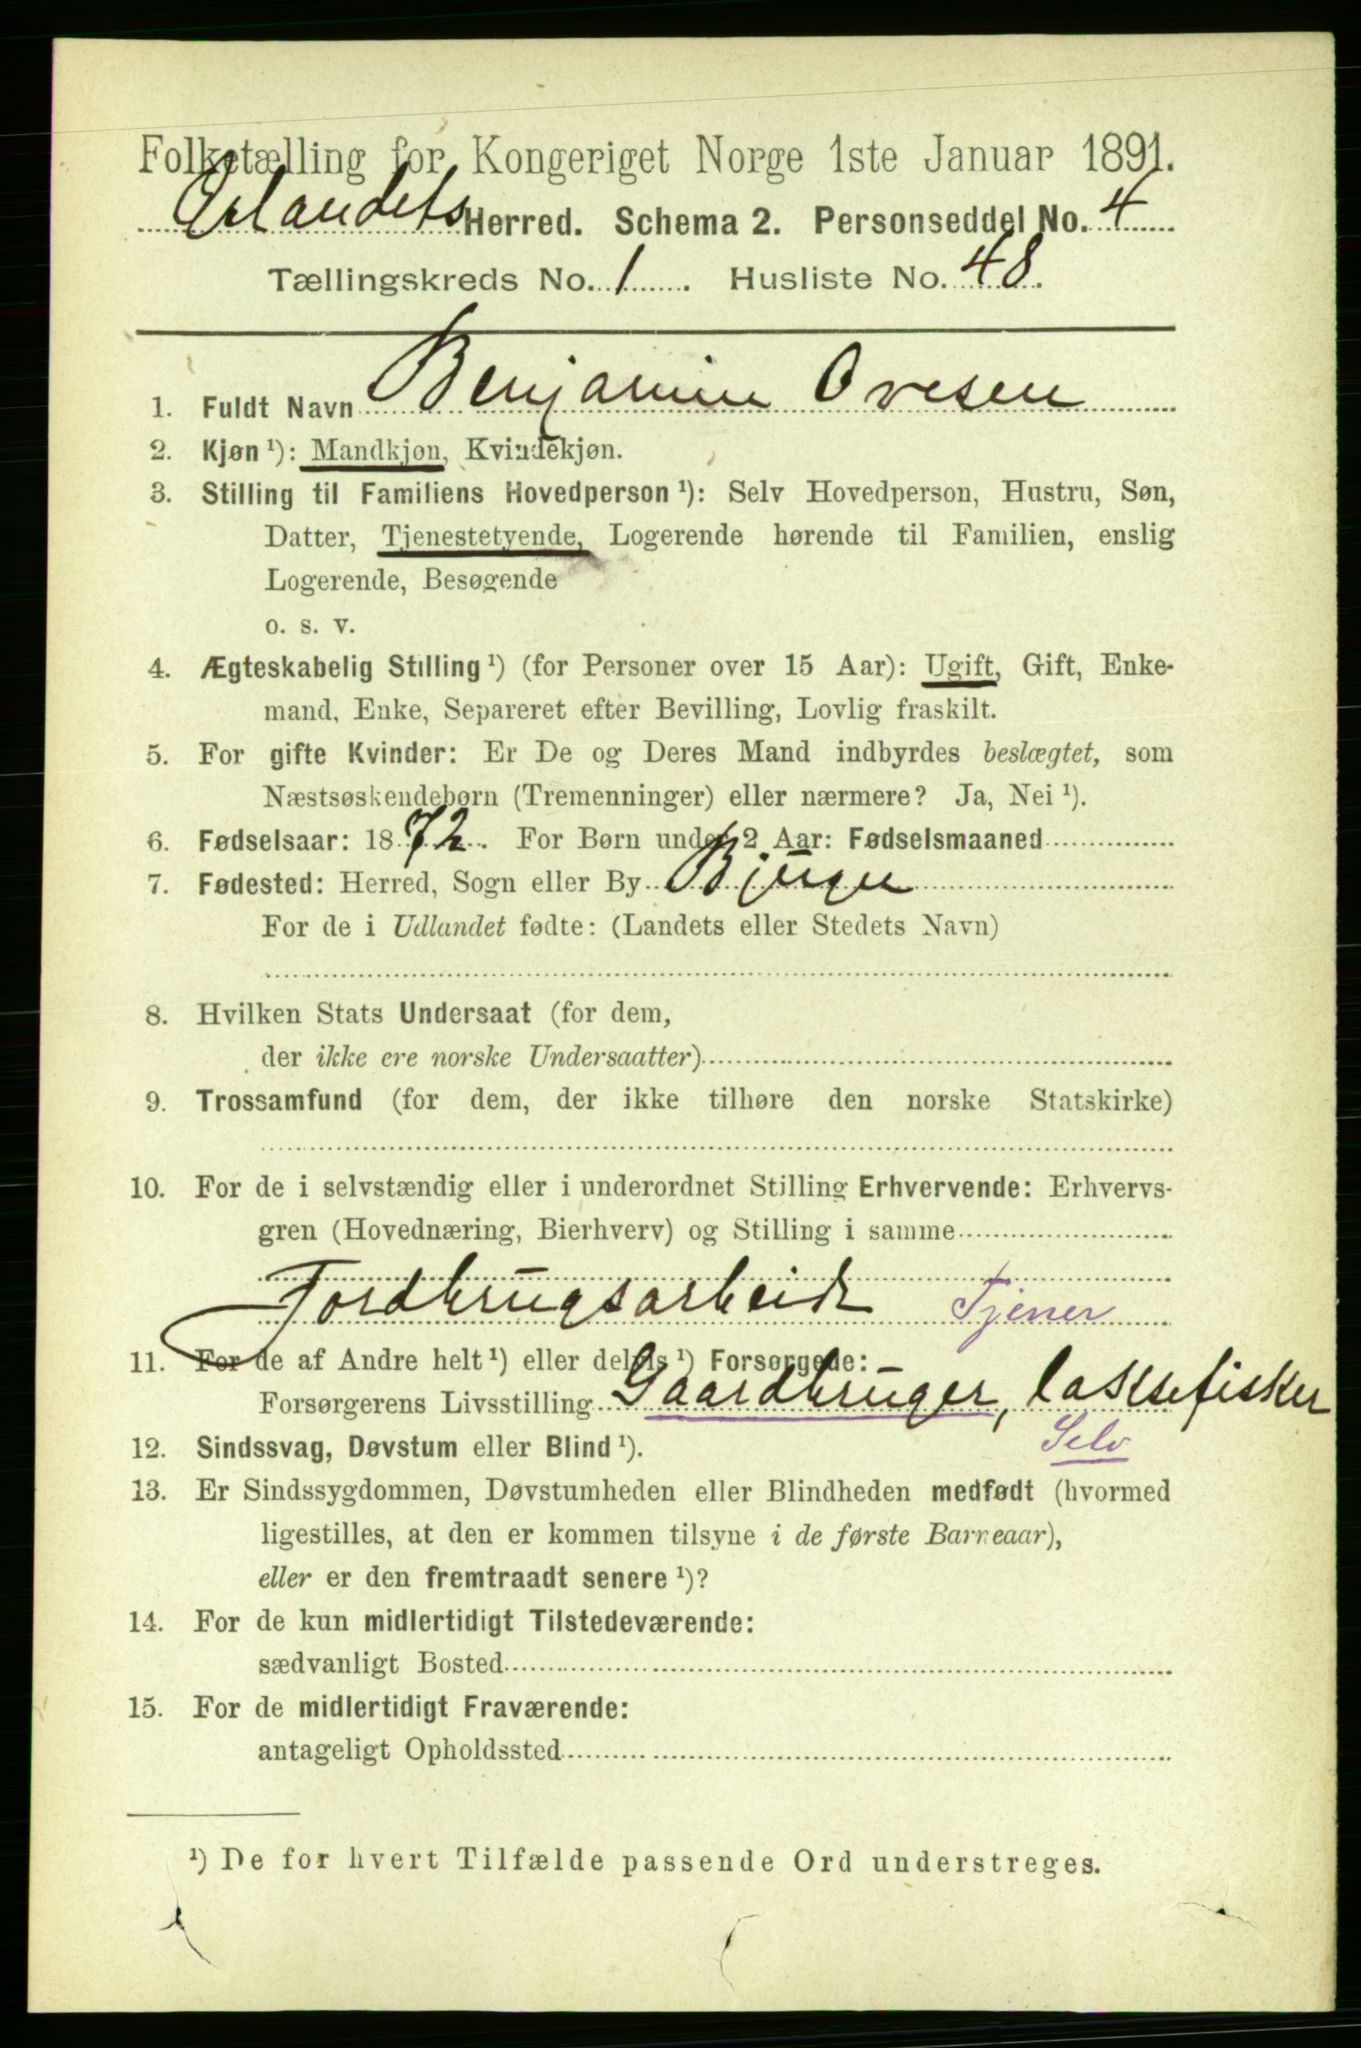 Folketælling for Kongeriget Norge 1ste Januar 1891.
Ørlandets Herred. Schema 2. Personseddel No. 4
Tællingskreds No. 1. Husliste No. 48.
1. Fuldt Navn Benjamin Ovesen
2. Kjøn ¹): Mandkjøn, Kvindekjøn.
3. Stilling til Familiens Hovedperson ¹): Selv Hovedperson, Hustru, Søn,
Datter, Tjenestetyende, Logerende hørende til Familien, enslig
Logerende, Besøgende
o. s. v.
4. Ægteskabelig Stilling ¹) (for Personer over 15 Aar): Ugift, Gift, Enke-
mand, Enke, Separeret efter Bevilling, Lovlig fraskilt.
5. For gifte Kvinder: Er De og Deres Mand indbyrdes beslægtet, som
Næstsøskendebørn (Tremenninger) eller nærmere? Ja, Nei ¹).
6. Fødselsaar: 1872. For Børn under 2 Aar: Fødselsmaaned
7. Fødested: Herred, Sogn eller By Bjugn
For de i Udlandet fødte: (Landets eller Stedets Navn)
8. Hvilken Stats Undersaat (for dem,
der ikke ere norske Undersaatter)
9. Trossamfund (for dem, der ikke tilhøre den norske Statskirke)
10. For de i selvstændig eller i underordnet Stilling Erhvervende: Erhvervs-
gren (Hovednæring, Bierhverv) og Stilling i samme
Jordbrugsarbeide Tjener
11. For de af Andre helt ¹) eller delvis ¹) Forsørgede:
Forsørgerens Livsstilling Gaardbruger, laxefisker
Selv
12. Sindssvag, Døvstum eller Blind ¹).
13. Er Sindssygdommen, Døvstumheden eller Blindheden medfødt (hvormed
ligestilles, at den er kommen tilsyne i de første Barneaar),
eller er den fremtraadt senere ¹)?
14. For de kun midlertidigt Tilstedeværende:
sædvanligt Bosted
15. For de midlertidigt Fraværende:
antageligt Opholdssted
¹) De for hvert Tilfælde passende Ord understreges.